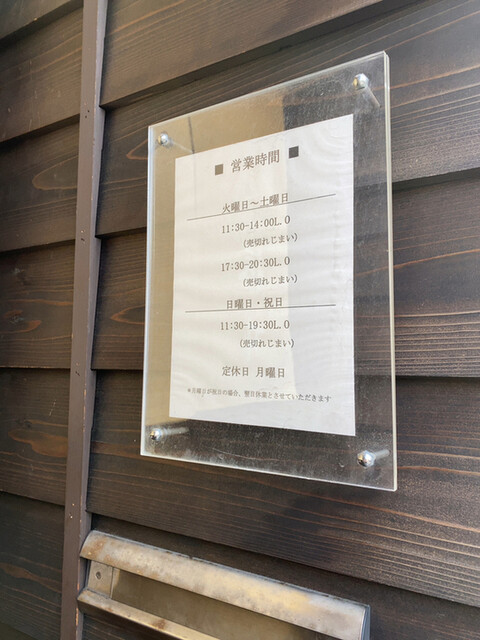 ■ 営業時間 ■
火曜日～土曜日
11:30-14:00L.O
(売切れじまい)
17:30-20:30L.O
(売切れじまい)
日曜日・祝日
11:30-19:30L.O
(売切れじまい)
定休日 月曜日
＊月曜日が祝日の場合、翌日休業とさせていただきます